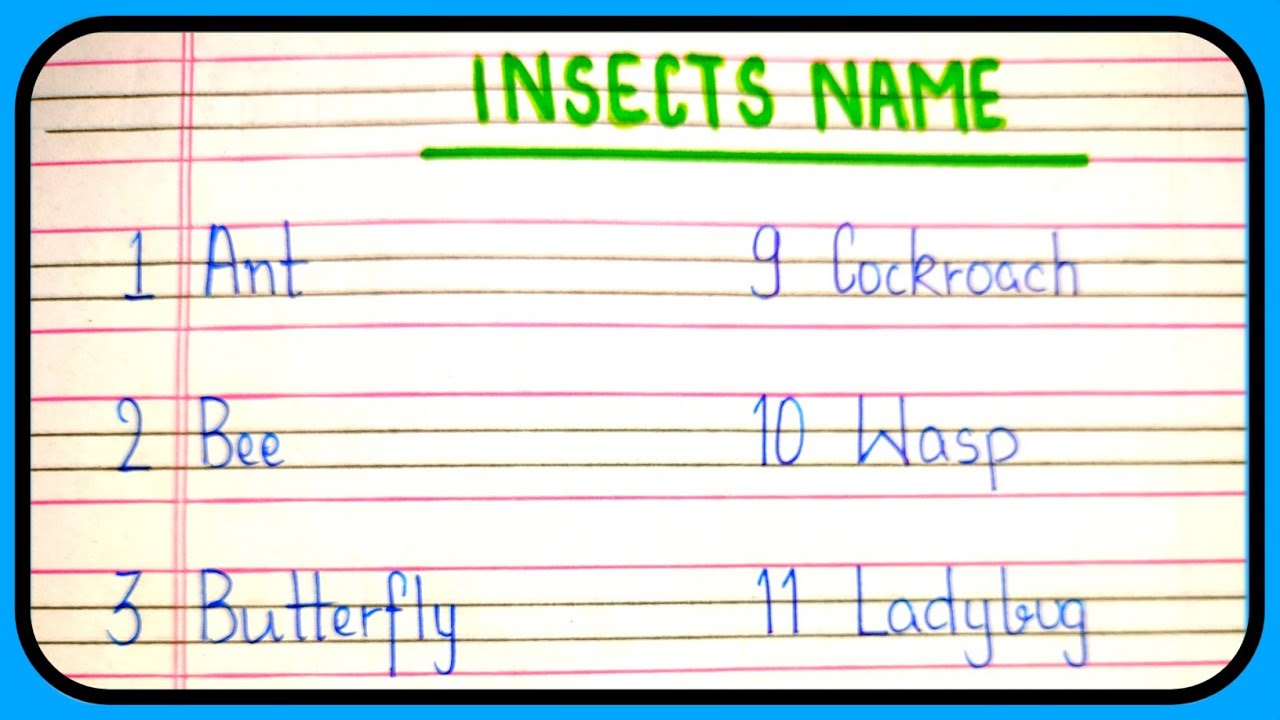 INSECTS NAME
1 Ant
9 Cockroach
2 Bee
10 Wasp
3 Butterfly
11 Ladybug